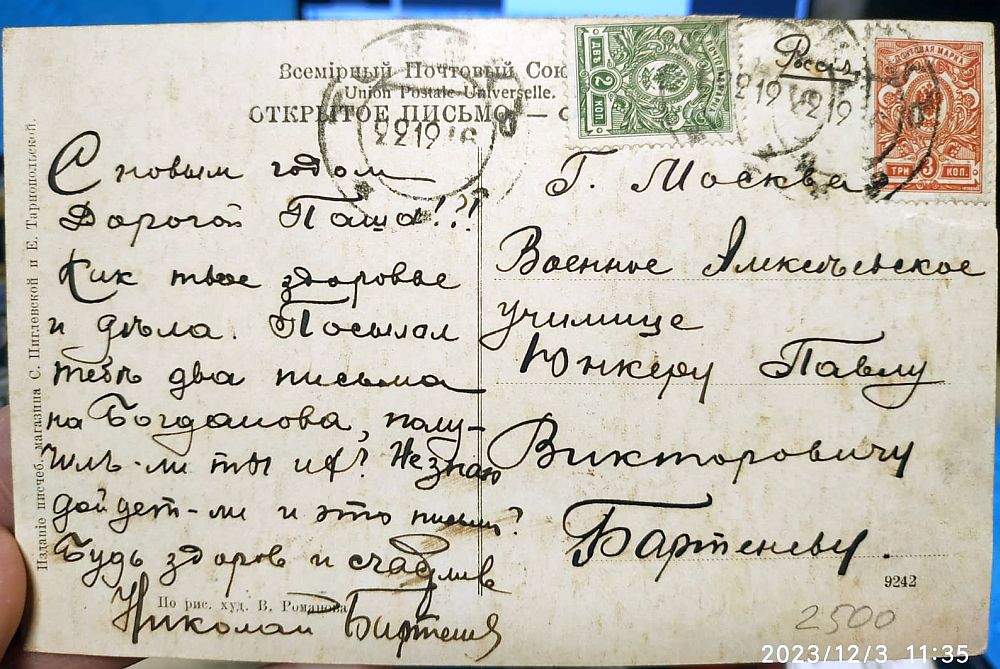 Всемірный Почтовый Сою
Union Postale Universelle.
ОТКРЫТОЕ ПИСЬМО. — C
22 19
ДВѢ 2 КОП
2 19
2 19
Россія
ПОЧТОВАЯ МАРКА
ТРИ 3 КОП.
С новым годом
Дорогой Паша!?!
Как твое здоровье
и дѣла. Посылал
тебѣ два письма
на Богданова, полу-
чилъ-ли ты их? Не знаю
дойдет-ли и это письмо?
Будь здоров и счастлив
Николай Бартенев
Г. Москва
Военное Алексѣевское
училище
Юнкеру Павлу
Викторовичу
Бартеневу.
9242
По рис. худ. В. Романова
Изданіе писчеб. магазина С. Циглевской и Е. Тарнопольской.
2500
2023/12/3 11:35